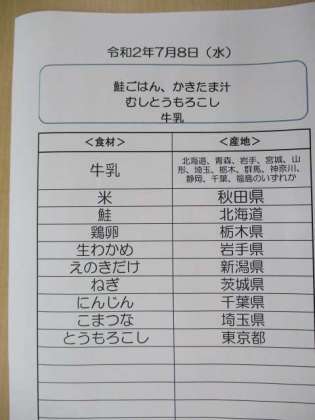 令和2年7月8日（水）
鮭ごはん、かきたま汁
むしとうもろこし
牛乳
＜食材＞ ＜産地＞
牛乳 北海道、青森、岩手、宮城、山
形、埼玉、栃木、群馬、神奈川、
静岡、千葉、福島のいずれか
米 秋田県
鮭 北海道
鶏卵 栃木県
生わかめ 岩手県
えのきだけ 新潟県
ねぎ 茨城県
にんじん 千葉県
こまつな 埼玉県
とうもろこし 東京都